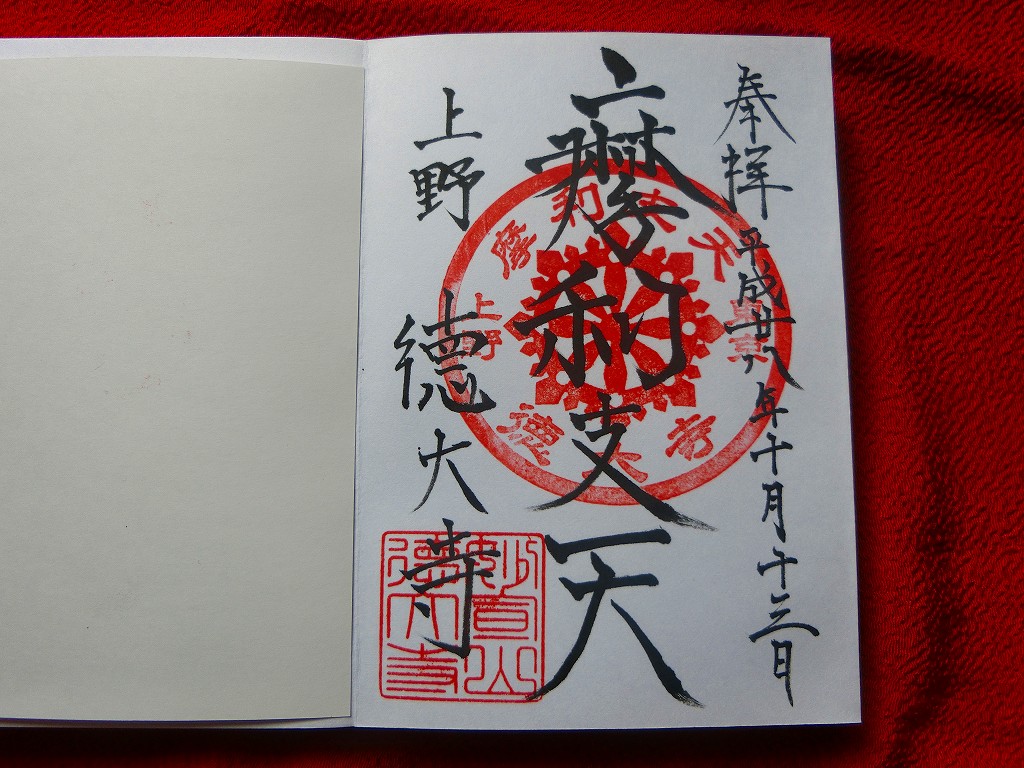 奉拝 平成廿八年十月十三日
摩利支天
上野 徳大寺
摩利支天
東京
上野
徳大寺
妙宣山
徳大寺